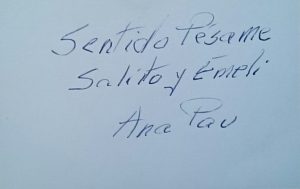 Sentido Pésame
Salito y Émeli
Ana Pau